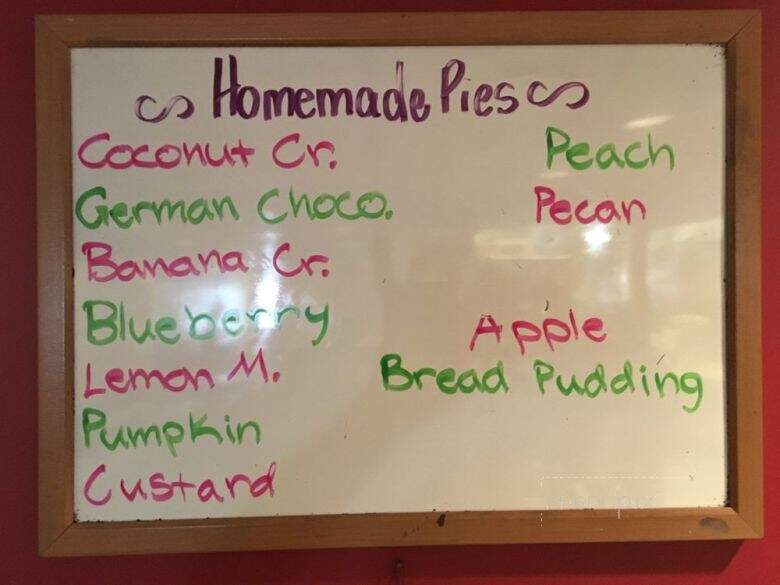 Homemade Pies
Coconut Cr.
German Choco.
Banana Cr.
Blueberry
Lemon M.
Pumpkin
Custard
Peach
Pecan
Apple
Bread Pudding